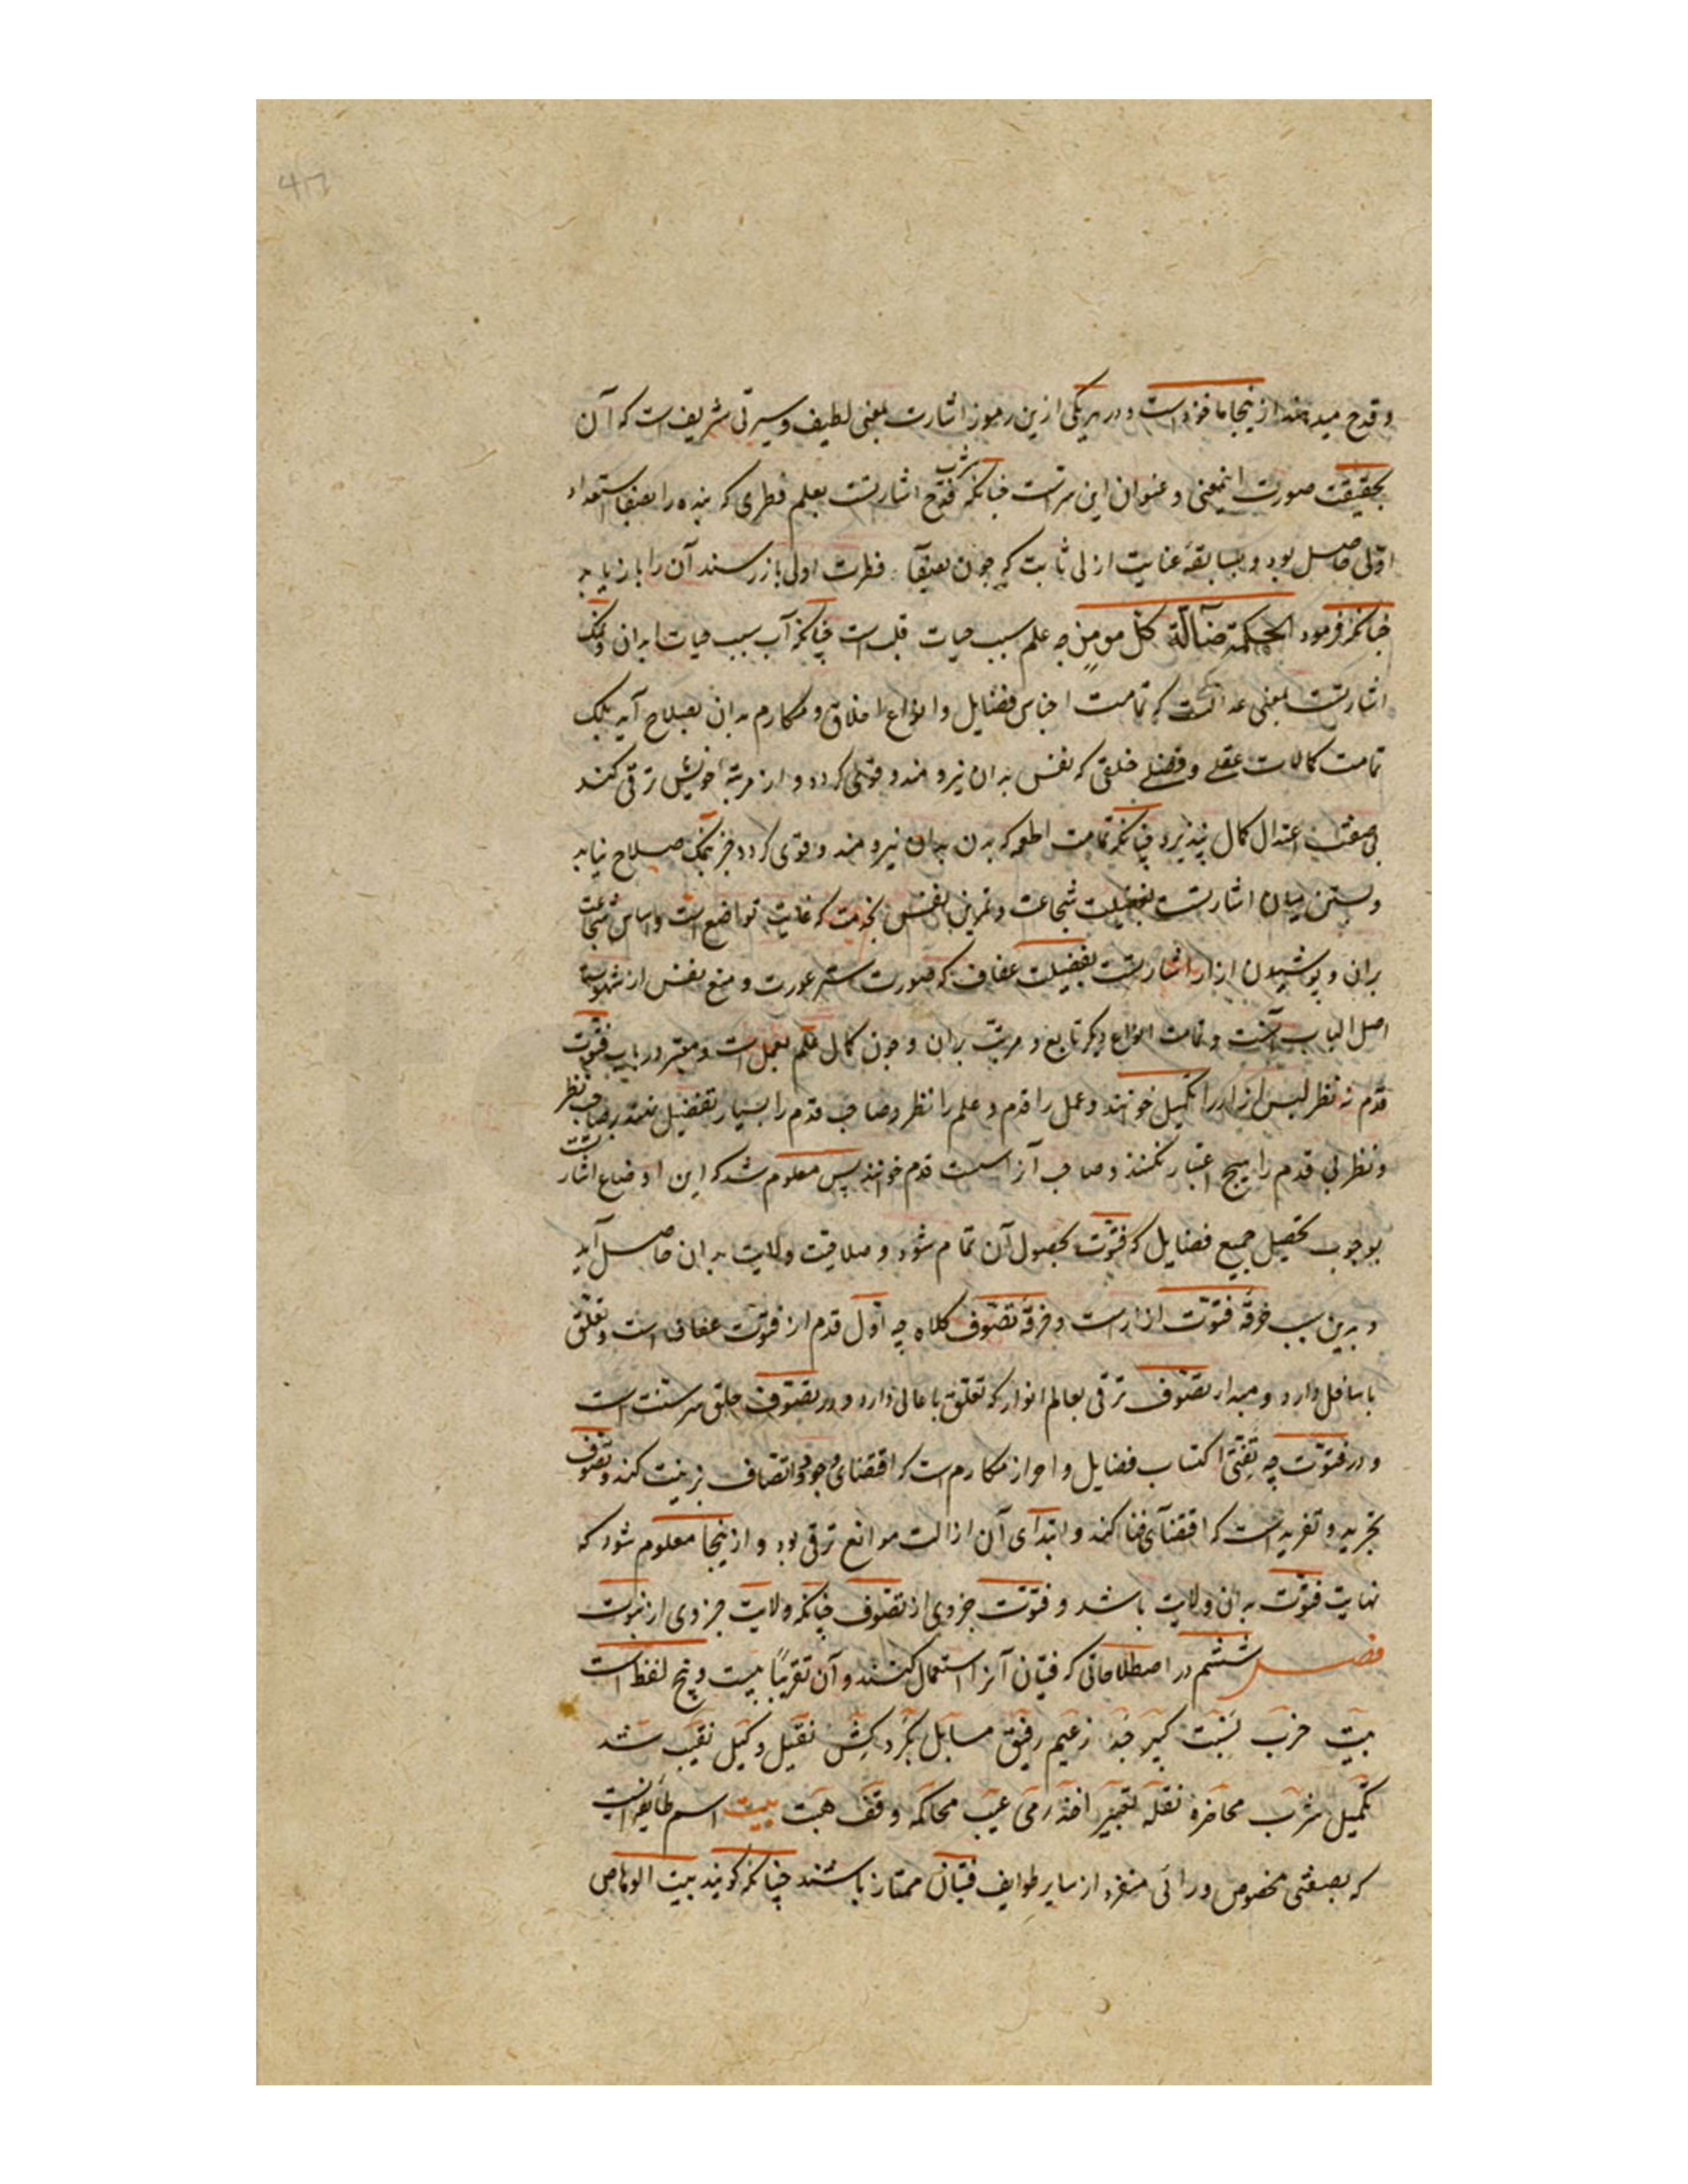 وقدح میدهند ازینجا ماخوذست و در هر یکی ازین رموز اشارت بمعنی لطیف و سیرتی شریف است که آن
بحقیقت صورت اینمعنی و عنوان این سرست چنانکه شرب قدح اشارتست بعلم فطری که بنده را بصفا استعداد
اولی حاصل بود و بسابقه عنایت ازلی ثابت که چون بصفآء فطرت اولی باز رسند آن را باز یابد
چنانکه فرمود الحکمة ضآلة کل مومن چه علم سبب حیات قلبست چنانکه آب سبب حیات ابدان و نمک
اشارتست بمعنی عدالت که تمامت اجناس فضایل و انواع اخلاق و مکارم بدان بصلاح آید بلک
تمامت کمالات عقلی و فضلی خلقی که نفس بدان نیرومند و قوی کردد و از مرتبه خویش ترقی کند
بی صفت اعتدال کمال نپذیرد چنانکه تمامت اطعمه که بدن بدان نیرومند و قوی کردد جز بنمک صلاح نیابد
وبستن میان اشارتست بفضیلت شجاعت و تمرین نفس بخدمت که غایت تواضع است و اساس شجاعت
بران و پوشیدن ازار اشارتست بفضیلت عفاف که صورت ستر عورت و منع نفس از شهوت
اصل الباب آنست و تمامت انواع دیکر تابع و مرتب بران و چون کمال علم بعمل است و معتبر در باب فتوت
قدم نه نظر لبس ازار را تکمیل خوانند و عمل را قدم و علم را نظر و صاحب قدم را بسیار تفضیل نهند بر صاحب نظر
ونظر بی قدم را هیچ اعتبار نکنند و صاحب آنرا سست قدم خوانند پس معلوم شد که این اوضاع اشارتست
بوجوب تحصیل جمیع فضایل که فتوت بحصول آن تمام شود و صلاقیت ولایت بدان حاصل آید
و بدین سبب خرقه فتوت ازارست و خرقه تصوف کلاه چه اول قدم از فتوت عفاف است و تعلق
باسافل دارد و مبداء تصوف ترقی بعالم انوار که تعلق باعالی دارد و در تصوف حلق سر سنت است
و در فتوت چه تفتی اکتساب فضایل و احراز مکارم است که اقتضای وجود و اتصاف بزینت کند و تصوف
تجرید و تفرید است که اقتضآی فنا کند و ابتدای آن ازالت موانع ترقی بود و ازینجا معلوم شود که
نهایت فتوت بدان ولایت باشد و فتوت جزوی از تصوف چنانکه ولایت جزوی از نبوت
فصل ششم در اصطلاحاتی که فتیان آنرا استعمال کنند و آن تقریبا بیست و پنج لفظ است
بیت حزب نسبت کبیر جد زعیم رفیق مسابل بکر دکش نقیل وکیل نقیب شد
تکمیل شرب محاضره نقله تعبیر اخذ رمی عیب محاکمه وقف هبت بیت اسم طایفه ایست
که بصفتی مخصوص و رائی منفرد از سایر طوایف فتیان ممتاز باشند چنانکه کویند بیت الوهاص